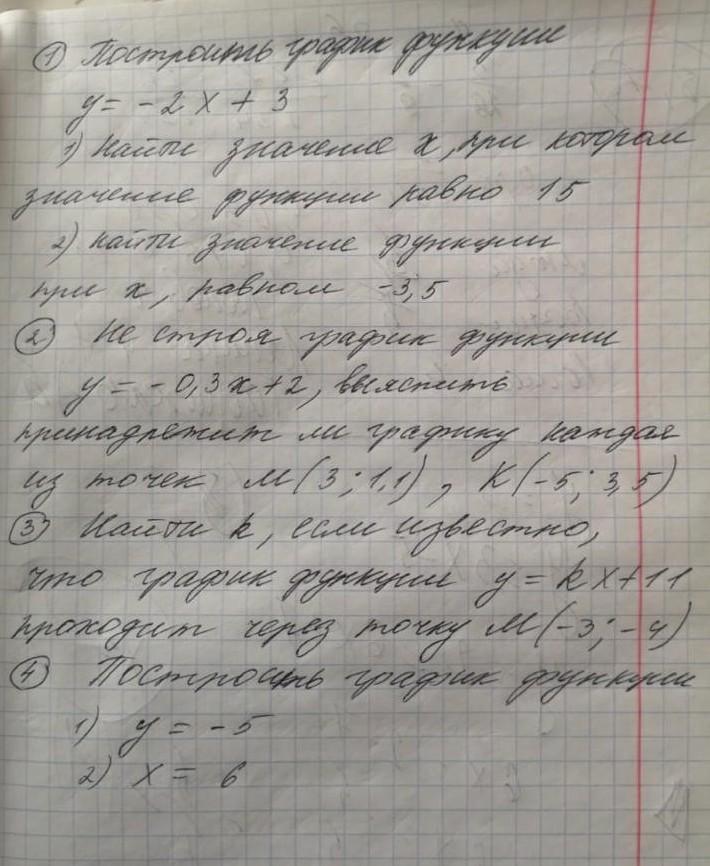 ① Построить график функции
y = -2x + 3
1) Найти значение x, при котором
значение функции равно 15
2) Найти значение функции
при x, равном -3,5
② Не строя график функции
y = -0,3x+2, выяснить
принадлежит ли графику каждая
из точек M(3; 1,1), K(-5; 3,5)
③ Найти k, если известно,
что график функции y = kx+11
проходит через точку M(-3; -4)
④ Построить график функции
1) y = -5
2) x = 6